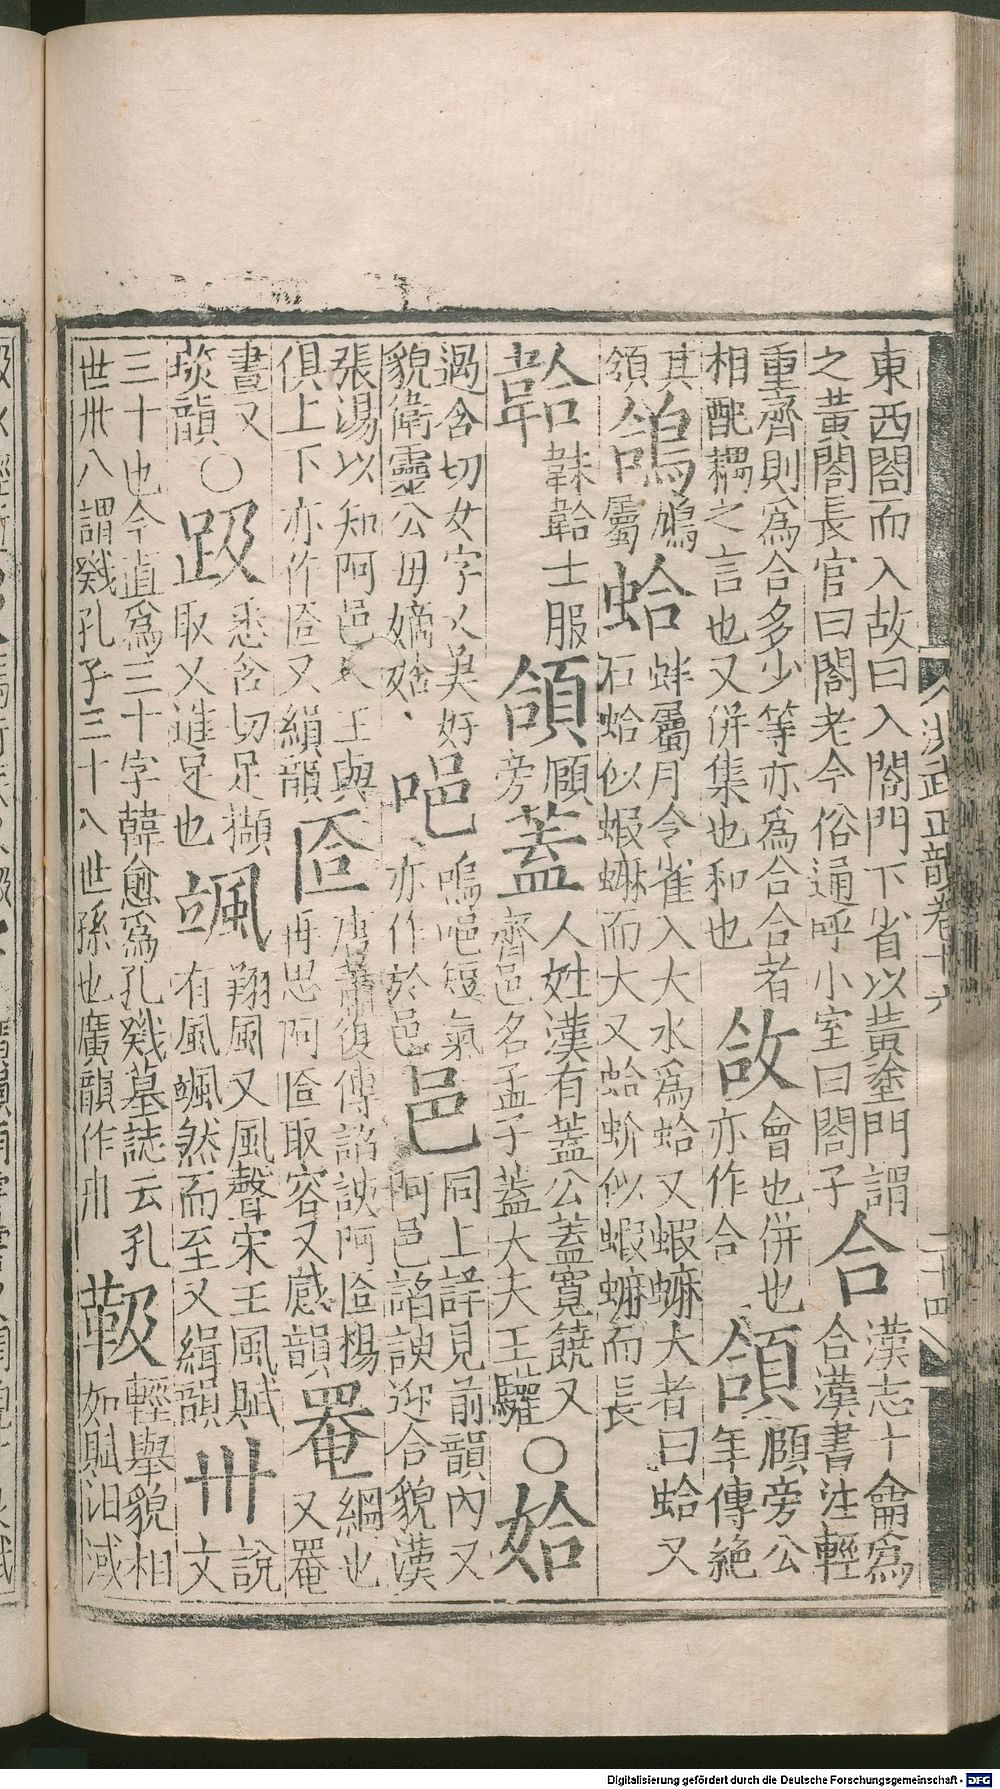 洪武正韻卷十六 二十四
東西閤而入故曰入閤門下省以黃塗門謂之黃閤長官曰閤老今俗通呼小室曰閤子 合 漢志十龠為合漢書注輕
重齊則為合多少等亦為合合者相酏耦之言也又併集也和也 敆 會也併也亦作合 頜 頤旁公羊傳絕
其領 鴿 鳩屬 蛤 蚌屬月令雀入大水為蛤又蝦蟆大者曰蛤又石蛤似蝦蟆而大又蛤蚧似蝦蟆而長
韐 韎韐士服 頜 頤旁 蓋 人姓漢有蓋公蓋寬饒又齊邑名孟子蓋大夫王驩 ○ 姶
遏合切女字又美好貌衛靈公母嫡姶 唈 嗚唈短氣亦作於邑 邑 同上詳見前韻內又阿邑諂諛迎合貌漢
張湯以知阿邑人主與俱上下亦作匼又緝韻 匼 唐蕭復傳諂諛阿匼楊再思阿匼取容又感韻 罨 網也又罨
畫又琰韻 ○ 趿 悉合切足擷取又進足也 颯 翔風又風聲宋玉風賦有風颯然而至又緝韻 卅 說文
三十也今直為三十字韓愈為孔戣墓誌云孔世卅八謂戣孔子三十八世孫也廣韻作卅 靸 輕舉貌相如賦汩淢
Digitalisierung gefördert durch die Deutsche Forschungsgemeinschaft - DFG